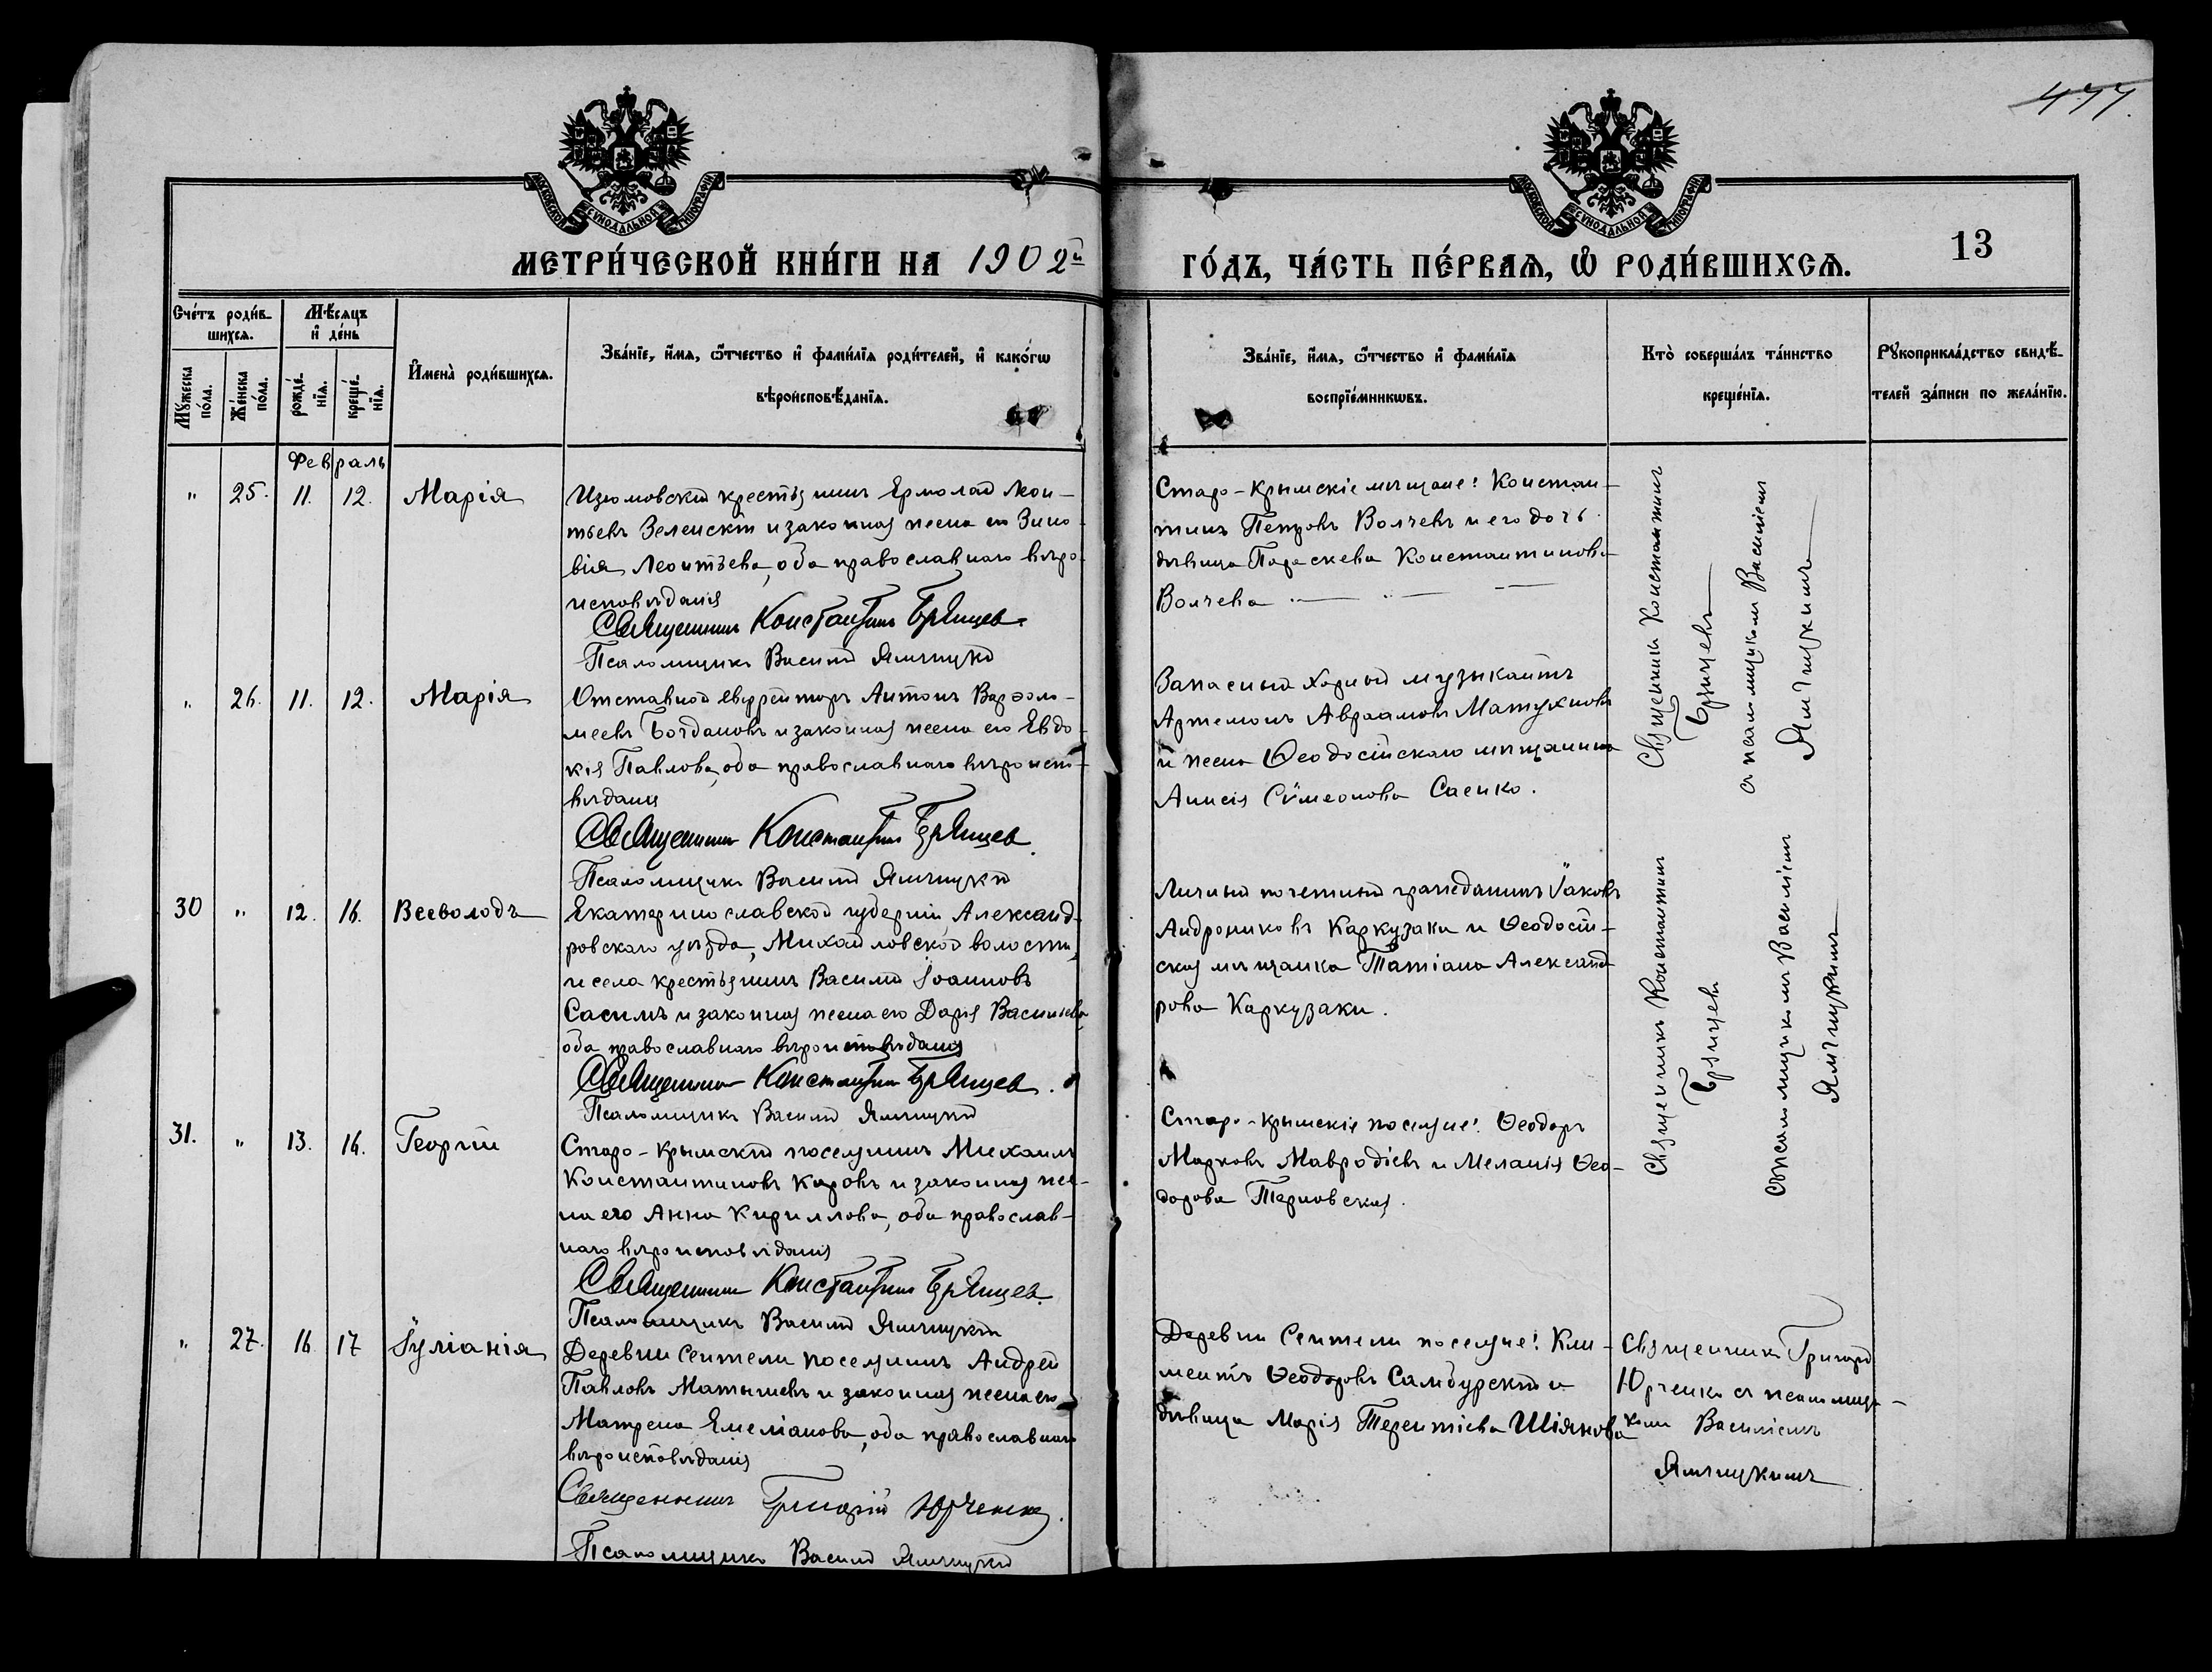 477.
МОСКОВСКОЙ СУНОДАЛЬНОЙ ТИПОГРАФІИ
МОСКОВСКОЙ СУНОДАЛЬНОЙ ТИПОГРАФІИ
МЕТРИ́ЧЕСКОЙ КНИ́ГИ НА 1902й
ГО́ДЪ, ЧА́СТЬ ПЕ́РВАЯ, Ѿ РОДИ́ВШИХСЯ.
13
Сче́тъ роди́в-
шихся.
Мѣ́сяцъ
и де́нь
Му́жеска
по́ла.
Же́нска
по́ла.
рожде́-
нія.
креще́-
нія.
И҆мена̀ роди́вшихся.
Зва́ніе, и҆́мя, ѻ҆́тчество и҆ фами́лія роди́телей, и҆ како́гѡ
вѣроисповѣ́данія.
Зва́ніе, и҆́мя, ѻ҆́тчество и҆ фами́лія
воспріе́мникѡвъ.
Кто̀ соверша́лъ та́инство
креще́нія.
Рукоприкла́дство свидѣ́-
телей за́писи по жела́нію.
Февраль
" 25. 11. 12. Марія
Изюмовскій крестьянинъ Ермолай Леон-
тьевъ Зеленскій и законная жена его Зино-
вія Леонтьева, оба православнаго вѣро-
исповѣданія
Священникъ Константинъ Брянцев.
Псаломщикъ Василій Ямчицкій
Старо-Крымскіе мѣщане: Констан-
тинъ Петровъ Волчевъ и его дочь
дѣвица Параскева Константинова
Волчева
Священникъ Константинъ
Брянцевъ
съ псаломщикомъ Василіемъ
Ямчицкимъ
" 26. 11. 12. Марія
Отставной ефрейторъ Антонъ Варѳоло-
меевъ Богдановъ и законная жена его Евдо-
кія Павлова, оба православнаго вѣроиспо-
вѣданія
Священникъ Константинъ Брянцев.
Псаломщикъ Василій Ямчицкій
Запасный хорный музыкантъ
Артемонъ Авраамовъ Матухновъ
и жена Ѳеодосійскаго мѣщанина
Анисія Сѵмеонова Саенко.
30 " 12. 16. Всеволодъ
Екатеринославской губерніи, Александ-
ровскаго уѣзда, Михайловской волости,
и села крестьянинъ Василій Іоанновъ
Сасимъ и законная жена его Дарія Васильева
оба православнаго вѣроисповѣданія
Священникъ Константинъ Брянцев.
Псаломщикъ Василій Ямчицкій
Личный почетный гражданинъ Іаковъ
Андрониковъ Каркузаки и Ѳеодосій-
ская мѣщанка Татіана Александ
рова Каркузаки.
Священникъ Константинъ
Брянцевъ
съ псаломщикомъ Василіемъ
Ямчицкимъ
31. " 13. 16. Георгій
Старо-Крымскій поселянинъ Михаилъ
Константиновъ Каровъ и законная же-
на его Анна Кириллова, оба православ-
наго вѣроисповѣданія
Священникъ Константинъ Брянцев.
Псаломщикъ Василій Ямчицкій
Старо-Крымскіе поселяне: Ѳеодоръ
Марковъ Мавродіевъ и Меланія Ѳео-
дорова Терновская.
" 27. 16. 17 Іуліанія
Деревни Сеители поселянинъ Андрей
Павловъ Матышевъ и законная жена его
Матрена Емеліанова, оба православнаго
вѣроисповѣданія
Священникъ Григорій Юрченко.
Псаломщикъ Василій Ямчицкій
Деревни Сеители поселяне: Кли-
ментъ Ѳеодоровъ Самбурскій и
дѣвица Марія Терентіева Шіянова
Священникъ Григорій
Юрченко съ псаломщи-
комъ Василіемъ
Ямчицкимъ